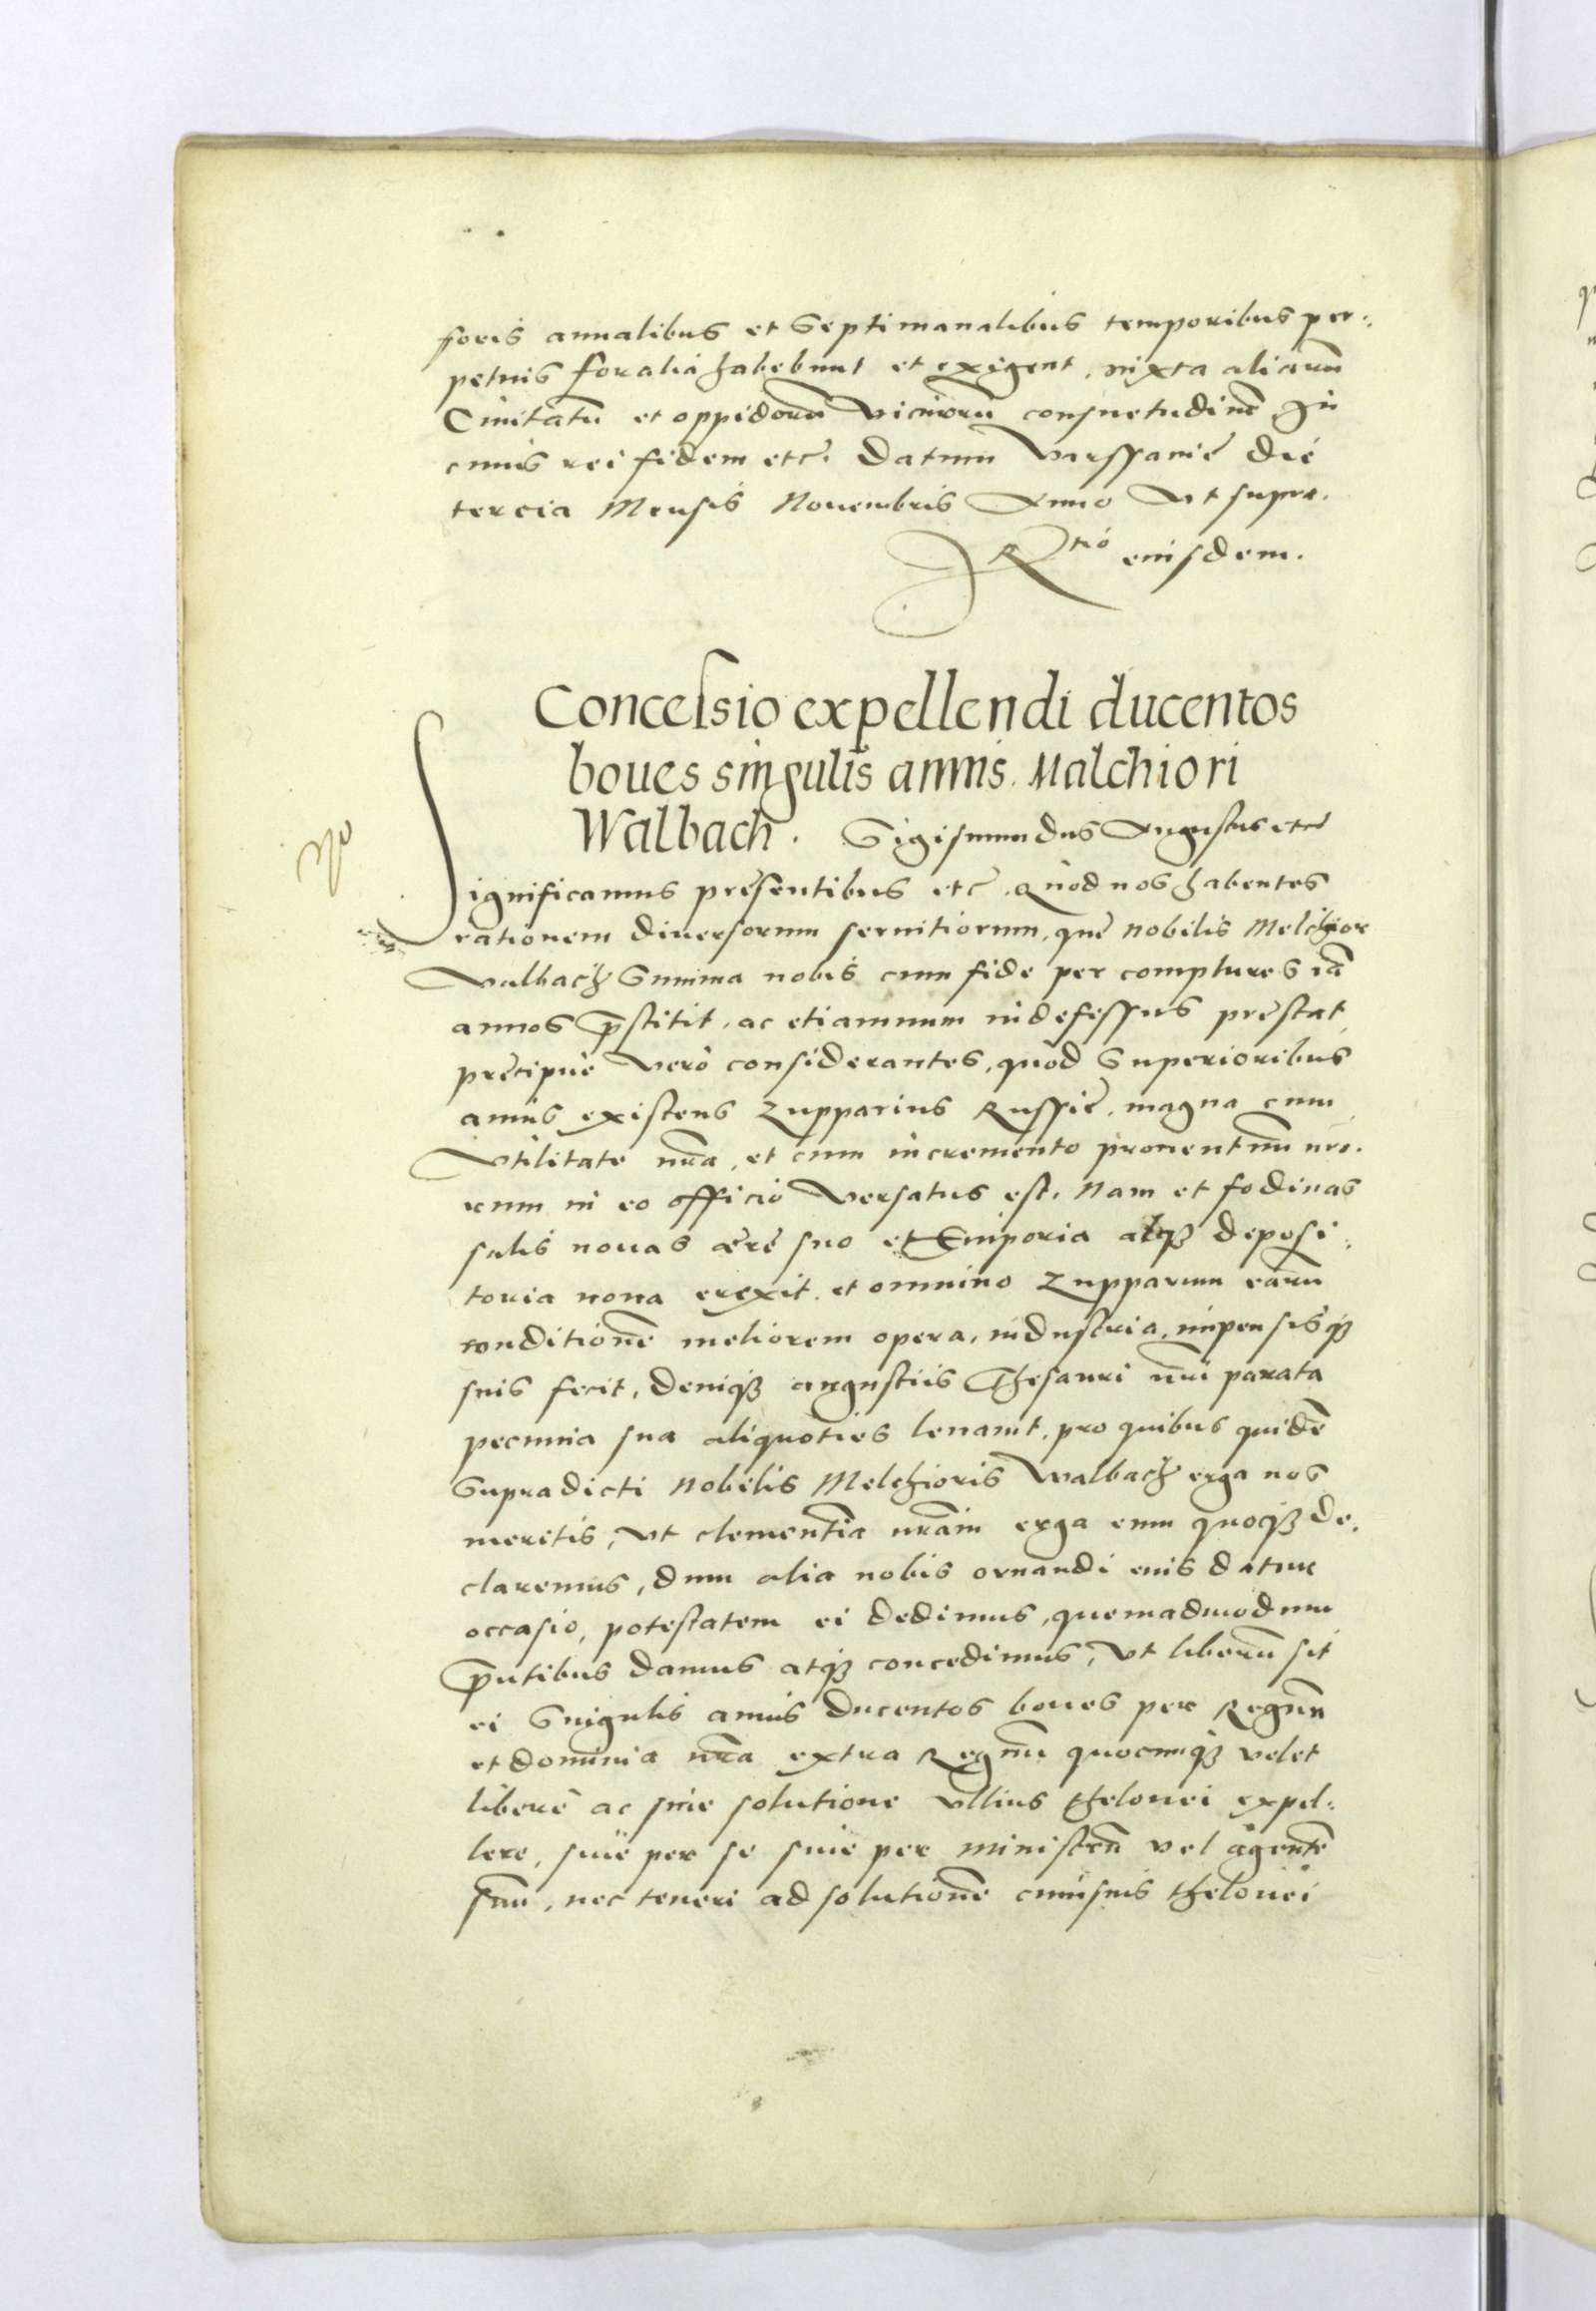 foris annalibus et Septimanalibus temporibus per-
petuis foralia habebunt et exigent, iuxta aliarũ
Ciuitatũ et oppidorũ vicinorũ consuetudinẽ. In
cuius rei fidem etc. Datum Varssauię die
tercia Mensis Nouembris Anno Vt supra.
Rtio eiusdem.
Concessio expellendi ducentos
boues singulis annis Malchiori
Walbach. Sigismundus Augustus etc
Significamus presentibus etc. Quod nos habentes
rationem diuersorum seruitiorum, quę Nobilis Melchior
Walbach Summa nobis cum fide per complures iã
annos p̃stitit, ac etiamnum indefessus pręstat,
pręcipuè verò considerantes, quòd Superioribus
annis existens Zupparius Russię, magna cum
Vtilitate nr̃a, et cum incremento prouentuũ nr̃o-
rum in eo officio Versatus est. Nam et fodinas
salis nouas ære suo et Emporia atq3 deposi-
toria noua erexit, et omnino Zupparum earũ
conditionẽ meliorem opera, industria, impensisq3
suis fecit, deniq3 angustiis Thesauri nr̃i parata
pecunia sua aliquoties leuauit, pro quibus quidẽ
Supradicti Nobilis Melchioris Walbach erga nos
meritis, Vt clementiã nr̃am erga eum quoq3 de-
claremus, dum alia nobis ornandi eius datur
occasio, potestatem ei dedimus, quemadmodum
p̃ntibus damus atq3 concedimus, Vt liberũ sit
ei Singulis annis Ducentos boues per Regnũ
et dominia nr̃a extra Regnũ quocunq3 velet
liberè ac sine solutione vllius thelonei expel-
lere, siue per se siue per ministrũ vel agentẽ
suũ, nec teneri ad solutionẽ cuiusuis thelonei